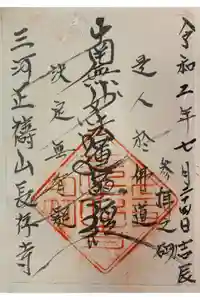 令和二年七月二十四日吉辰
参拝之砌
是人於佛道
南無妙法蓮華経
決定無有疑
三河正山長存寺